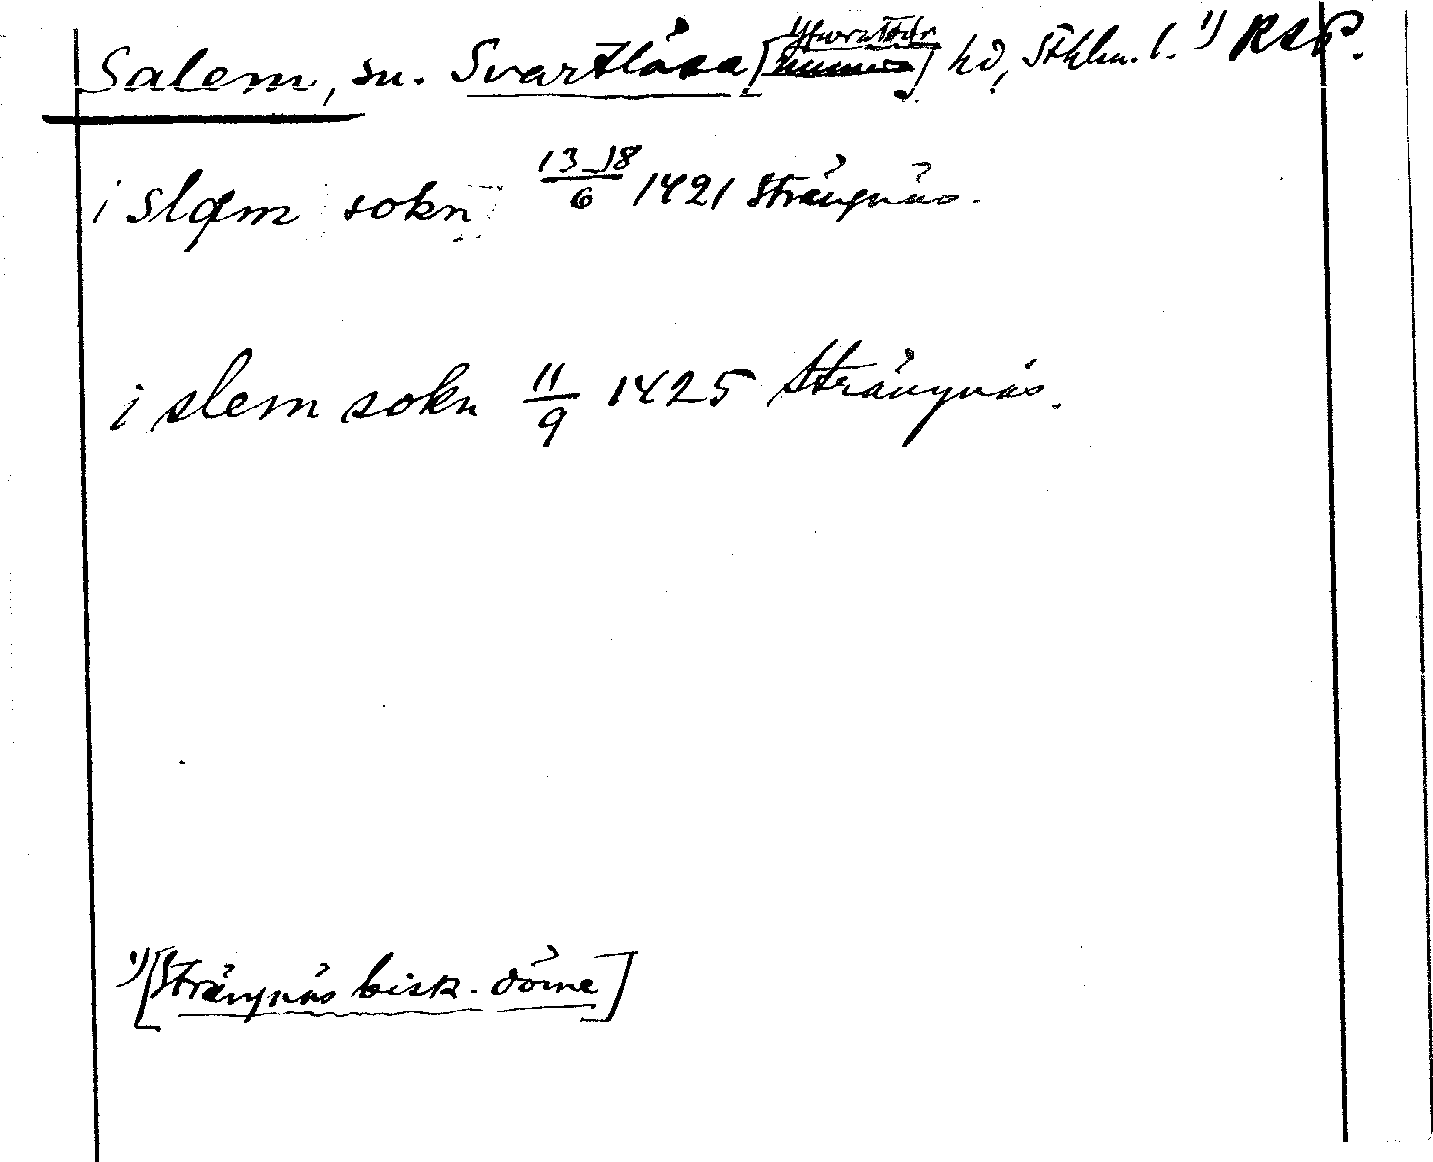 Salem, sn. Svartlösa [ ] hd, Sthlm. l. 1) RSP.
i slęm sokn 13-18/6 1421 Strängnäs.
i slem sokn 11/9 1425 Strängnäs.
1) [Strängnäs bisk. döme]